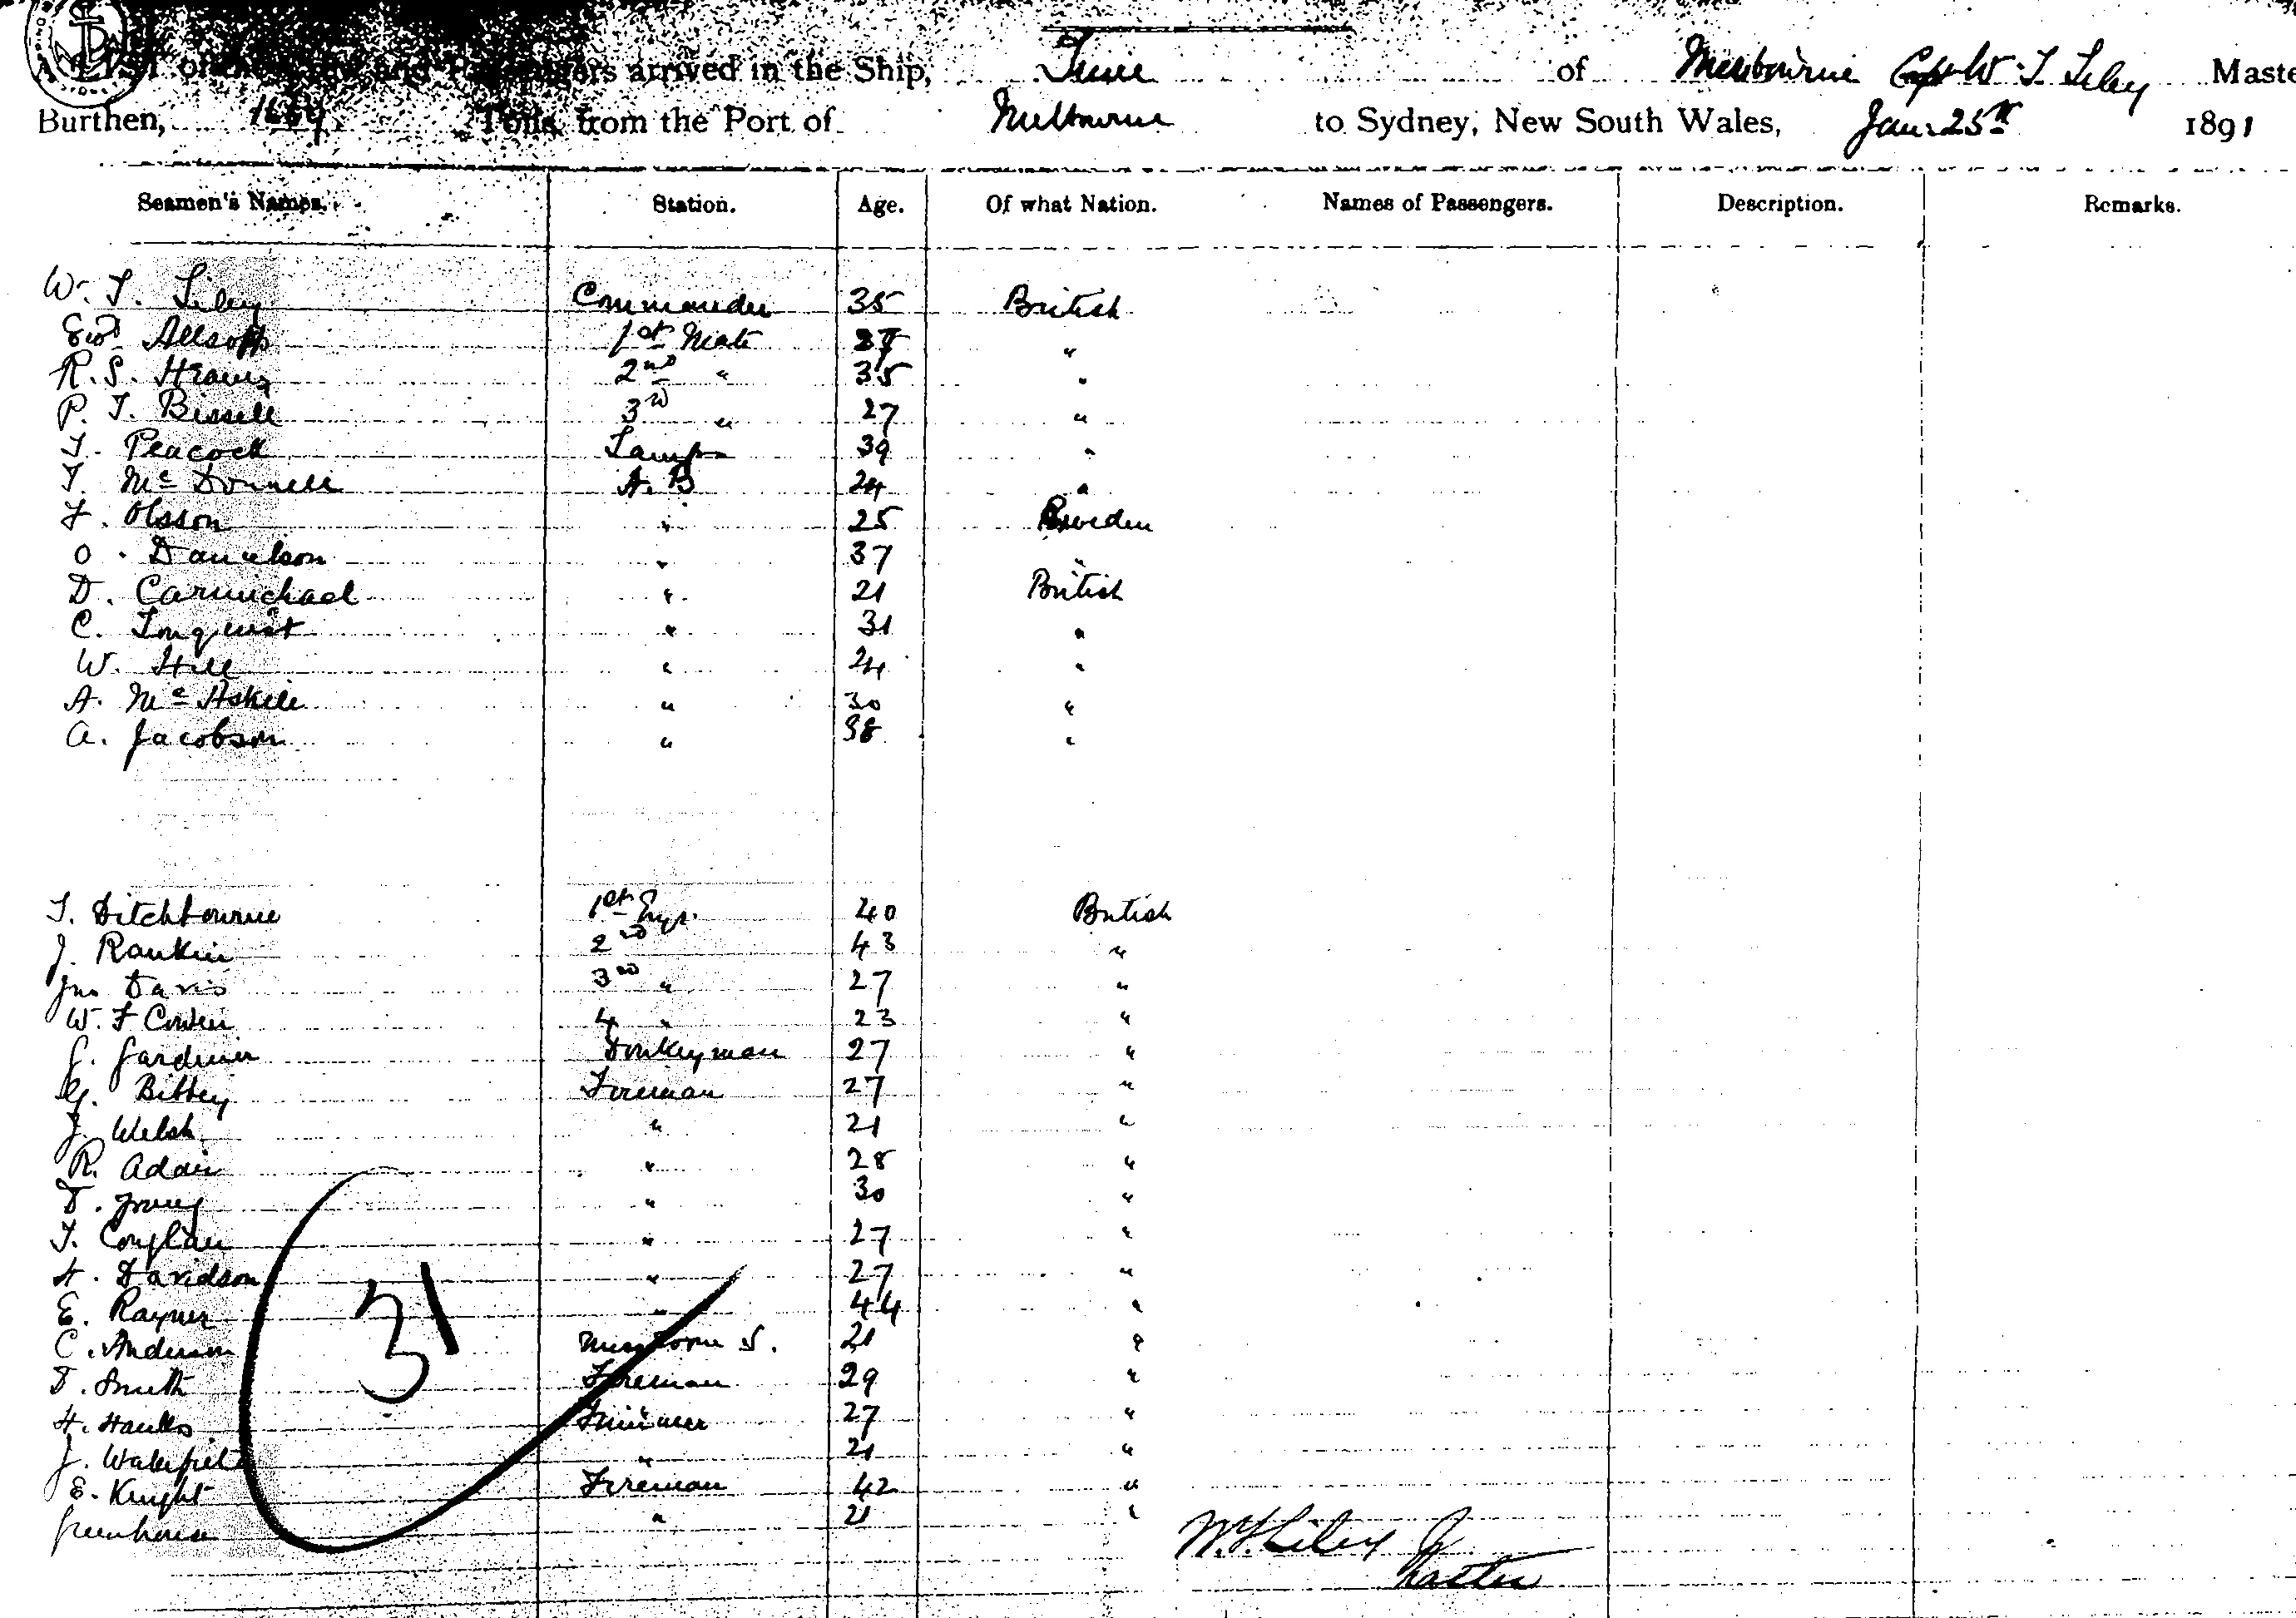 A List of the Crew and Passengers arrived in the Ship, of Melbourne Capt W. T. Liley Maste
Burthen, Tons, from the Port of Melbourne to Sydney, New South Wales, Jan. 25th 1891
Seamen's Names. Station. Age. Of what Nation. Names of Passengers. Description. Remarks.
W. T. Liley Commander 35 British
Ewd Allsopp 1st Mate "
R. S. 2nd " 35 "
P. T. Bissell 3rd " 27 "
T. Peacock Lamps 39 "
T. McDonnell A.B 24 "
F. Olsson " 25 Sweden
O. Danielson " 37 "
D. Carmichael " 21 British
C. " 31 "
W. Hill " 24 "
A. McAskill " 30 "
A. Jacobson " 38 "
T. Ditchbourne 1st Engr. 40 British
J. Rankin 2nd 43 "
Jno Davis 3rd " 27 "
W. F Cowen 4 " 23 "
J. Gardiner Donkeyman 27 "
G. Bibbey Fireman 27 "
J. Welsh " 21 "
R. Adair " 28 "
D. Young " 30 "
T. Coughlan " 27 "
H. Davidson " 27 "
E. Rayner " 44 "
C. Anderson Messroom S. 21 "
D. Smith Fireman 29 "
H. Trimmer 27 "
J. Wakefield " 21 "
E. Knight Fireman 42 "
Greenhouse " 21 "
31
W. T. Liley
Master